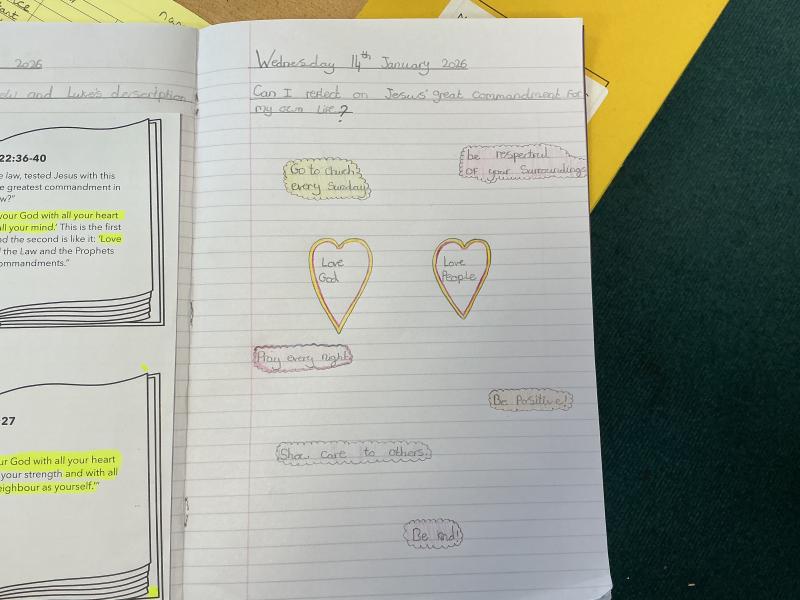 2026
and Luke's derscription
22:36-40
law, tested Jesus with this
greatest commandment in
your God with all your heart
all your mind.' This is the first
the second is like it: 'Love
the Law and the Prophets
27
God with all your heart
your strength and with all
as yourself.'"
Wednesday 14th January 2026
Can I reflect on Jesus' great commandment for
my own life?
Go to church
every Sunday
be respectful
of your surroundings
Love
God
Love
People
Pray every night
Be Positive!
Show care to others.
Be kind!